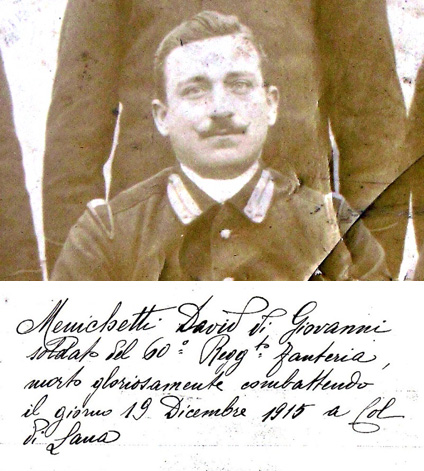 Menichetti David di Giovanni
soldato del 60° Regg.to fanteria,
morto gloriosamente combattendo
il giorno 19 Dicembre 1915 a Col
di Lana